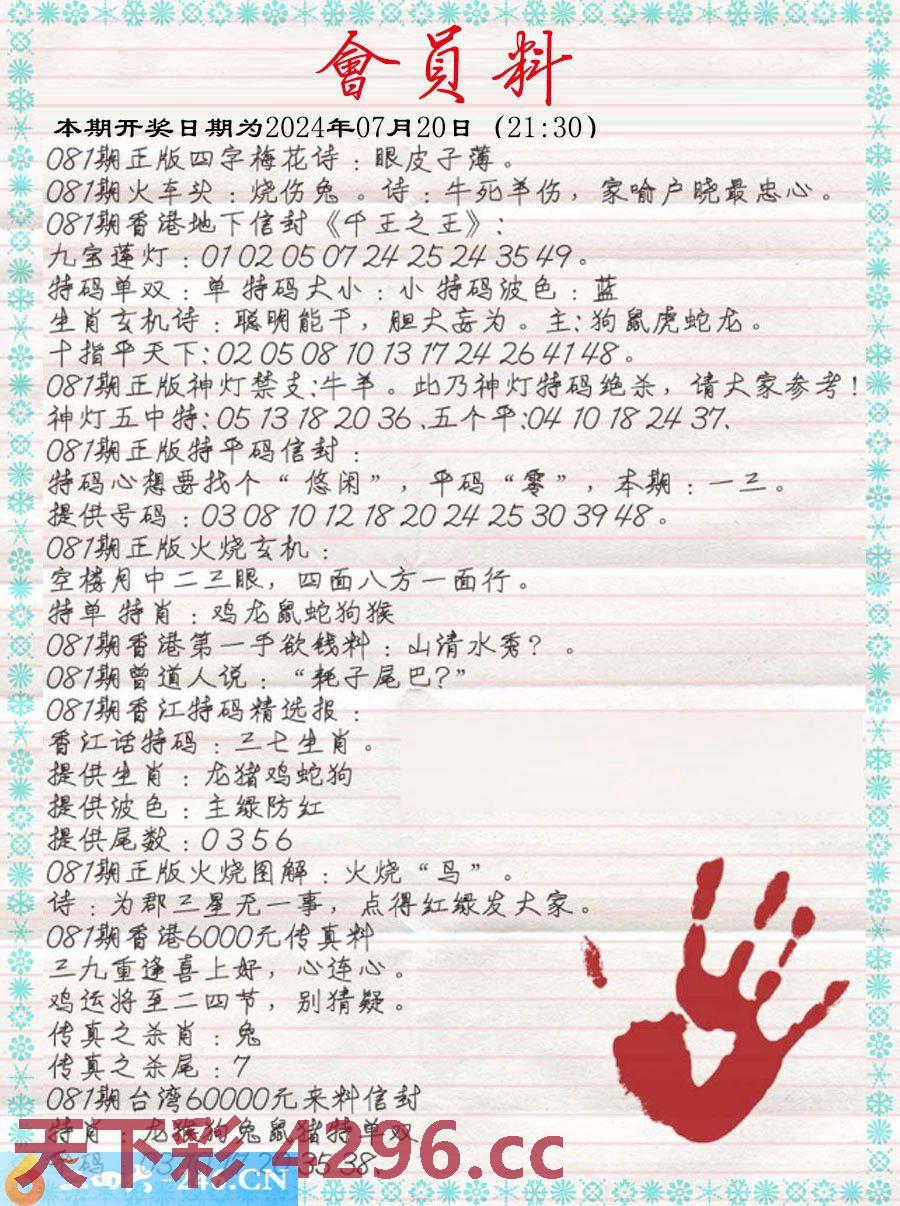 會員料
本期开奖日期为2024年07月20日（21:30）
081期正版四字梅花诗：眼皮子薄。
081期火车头：烧伤兔。诗：牛死羊伤，家喻户晓最忠心。
081期香港地下信封《千王之王》：
九宝莲灯：01 02 05 07 24 25 24 35 49。
特码单双：单 特码大小：小 特码波色：蓝
生肖玄机诗：聪明能干，胆大妄为。主：狗鼠虎蛇龙。
十指平天下：02 05 08 10 13 17 24 26 41 48。
081期正版神灯禁支：牛羊。此乃神灯特码绝杀，请大家参考！
神灯五中特：05 13 18 20 36、五个平：04 10 18 24 37、
081期正版特平码信封：
特码心想要找个“悠闲”，平码“零”，本期：一三。
提供号码：03 08 10 12 18 20 24 25 30 39 48。
081期正版火烧玄机：
空楼月中二三眼，四面八方一面行。
特单 特肖：鸡龙鼠蛇狗猴
081期香港第一手欲钱料：山清水秀？。
081期曾道人说：“耗子尾巴？”
081期香江特码精选报：
香江话特码：三七生肖。
提供生肖：龙猪鸡蛇狗
提供波色：主绿防红
提供尾数：0 3 5 6
081期正版火烧图解：火烧“鸟”。
诗：为郡三星无一事，点得红绿发大家。
081期香港6000元传真料
三九重逢喜上好，心连心。
鸡运将至二四节，别猜疑。
传真之杀肖：兔
传真之杀尾：7
081期台湾60000元来料信封
特肖：龙猴狗兔鼠猪特单双
35 38、
天下彩 4296.cc
246.CN